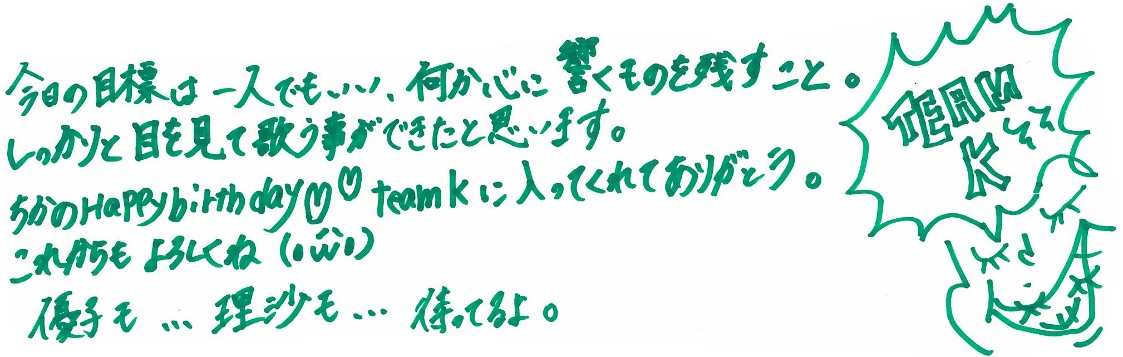 今日の目標は一人でもいい、何か心に響くものを残すこと。
しっかりと目を見て歌う事ができたと思います。
ちかのHappy birthday♡♡ team kに入ってくれてありがとう。
これからもよろしくね (•ω•)
優子も…理沙も…待ってるよ。
TEAM
K